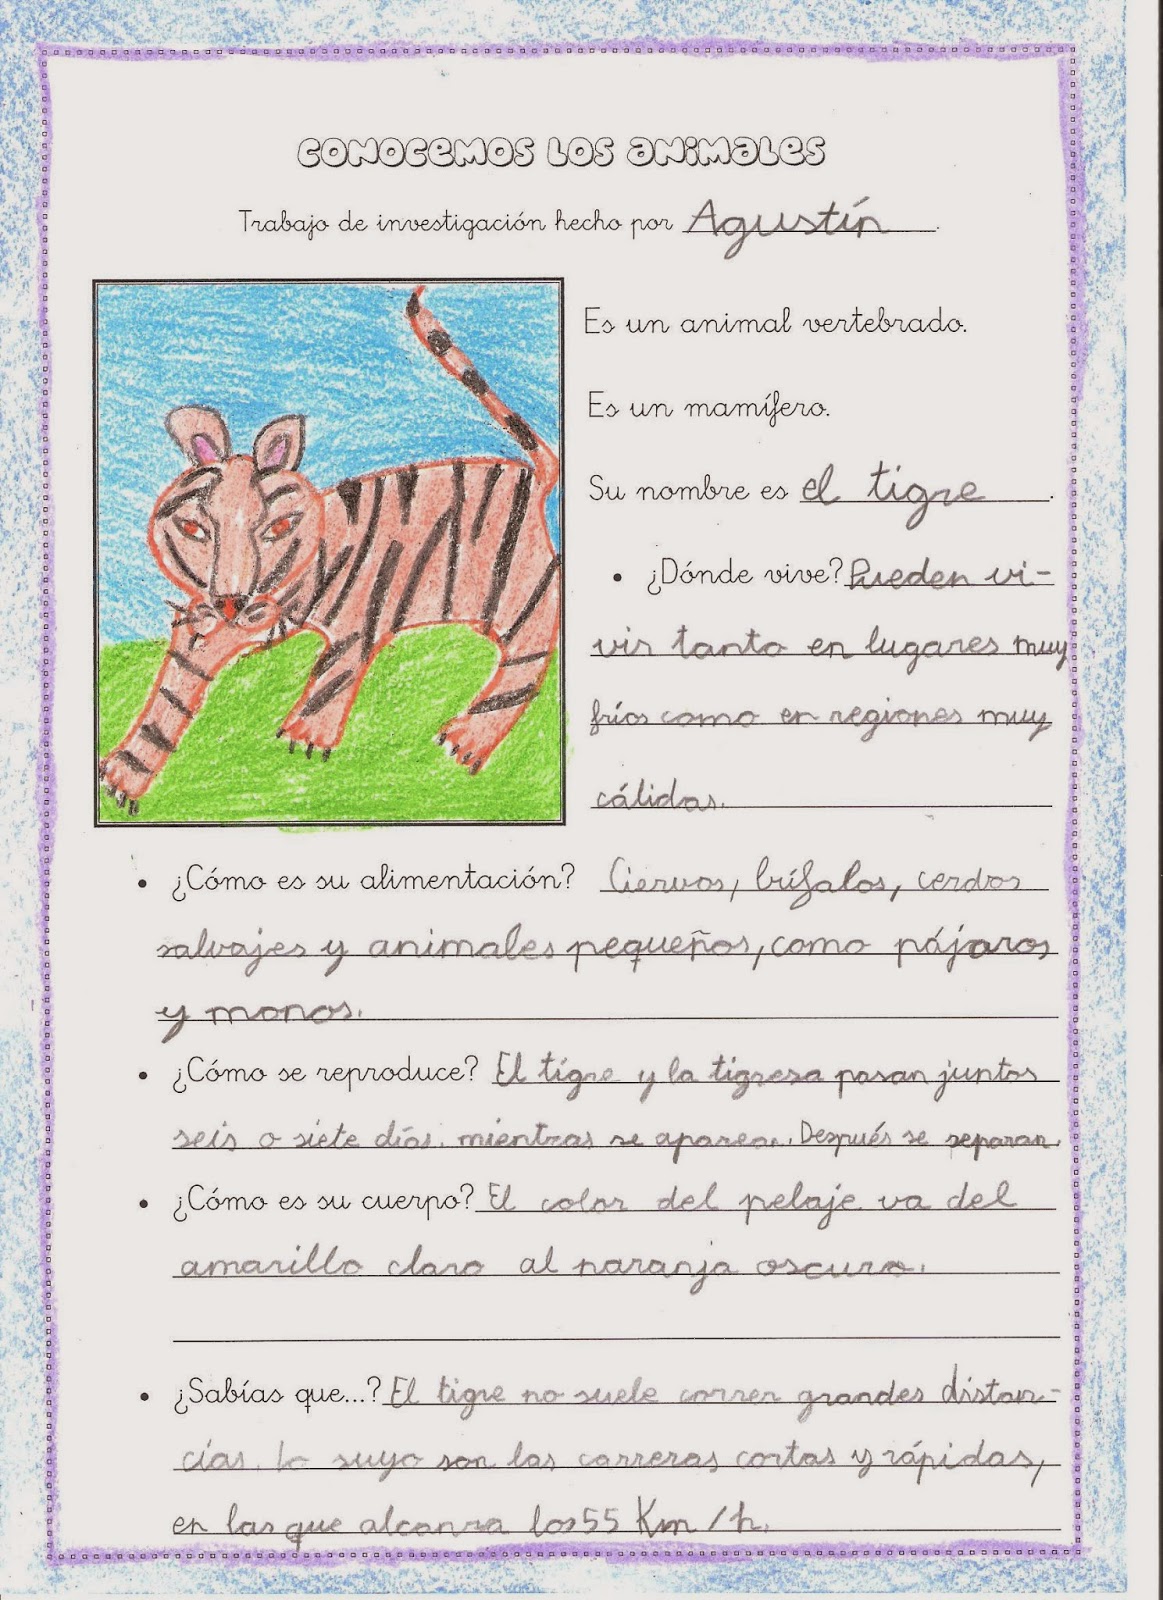 CONOCEMOS LOS ANIMALES
Trabajo de investigación hecho por Agustín.
Es un animal vertebrado.
Es un mamífero.
Su nombre es el tigre.
• ¿Dónde vive? Pueden vi-
vir tanto en lugares muy
fríos como en regiones muy
cálidas.
• ¿Cómo es su alimentación? Ciervos, búfalos, cerdos
salvajes y animales pequeños, como pájaros
y monos.
• ¿Cómo se reproduce? El tigre y la tigresa pasan juntos
seis o siete días, mientras se aparean. Después se separan.
• ¿Cómo es su cuerpo? El color del pelaje va del
amarillo claro al naranja oscuro.
• ¿Sabías que...? El tigre no suele correr grandes distan-
cías. Lo suyo son las carreras cortas y rápidas,
en las que alcanza los 55 Km/h.